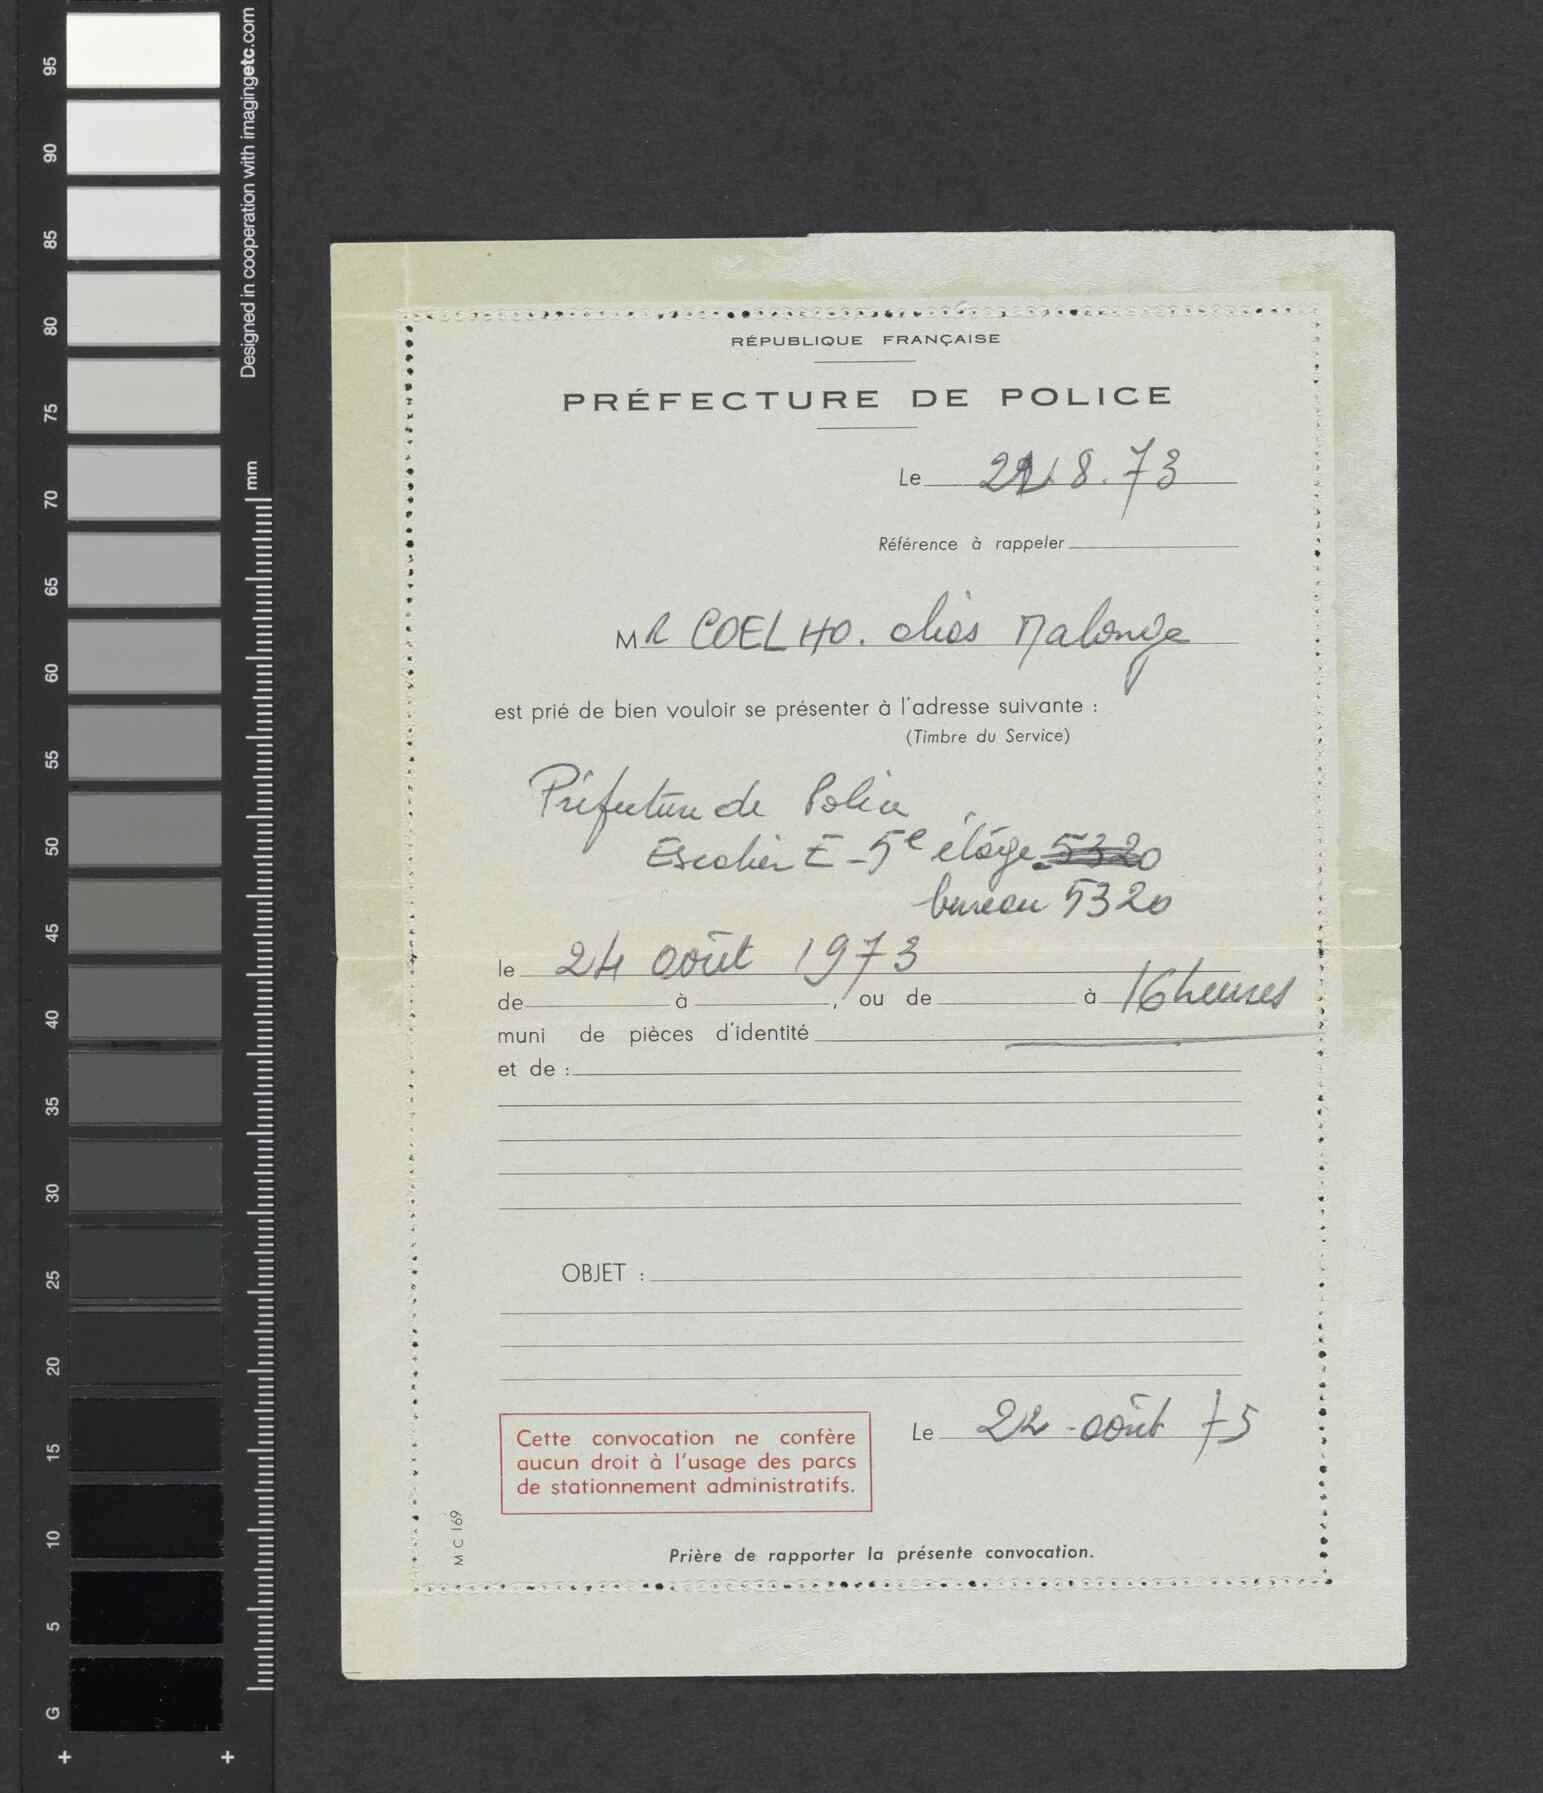 95
90
85
80
75
70
65
60
55
50
45
40
35
30
25
20
15
10
5
G
Designed in cooperation with imagingetc.com
mm
RÉPUBLIQUE FRANÇAISE
PRÉFECTURE DE POLICE
Le 22 8. 73
Référence à rappeler
MR COELHO. alias Malonge
est prié de bien vouloir se présenter à l'adresse suivante :
(Timbre du Service)
Préfecture de Police
Escalier E - 5e étage 5320
bureau 5320
le 24 août 1973
de à , ou de à 16 heures
muni de pièces d'identité
et de :
OBJET :
Cette convocation ne confère
aucun droit à l'usage des parcs
de stationnement administratifs.
Le 22 - août 73
M C 169
Prière de rapporter la présente convocation.